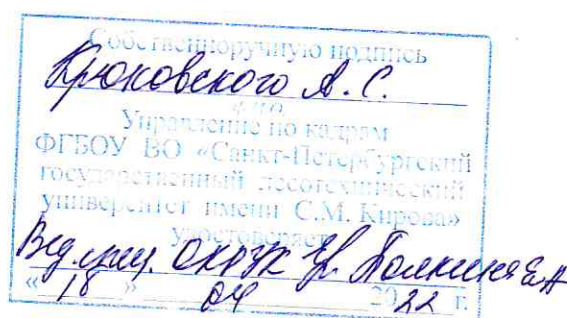 Собственноручную подпись
Крюковского А. С.
Ф.И.О.
Управление по кадрам
ФГБОУ ВО «Санкт-Петербургский
государственный лесотехнический
университет имени С.М. Кирова»
удостоверяет
Полкина Е.А
«18» 04 2022 г.